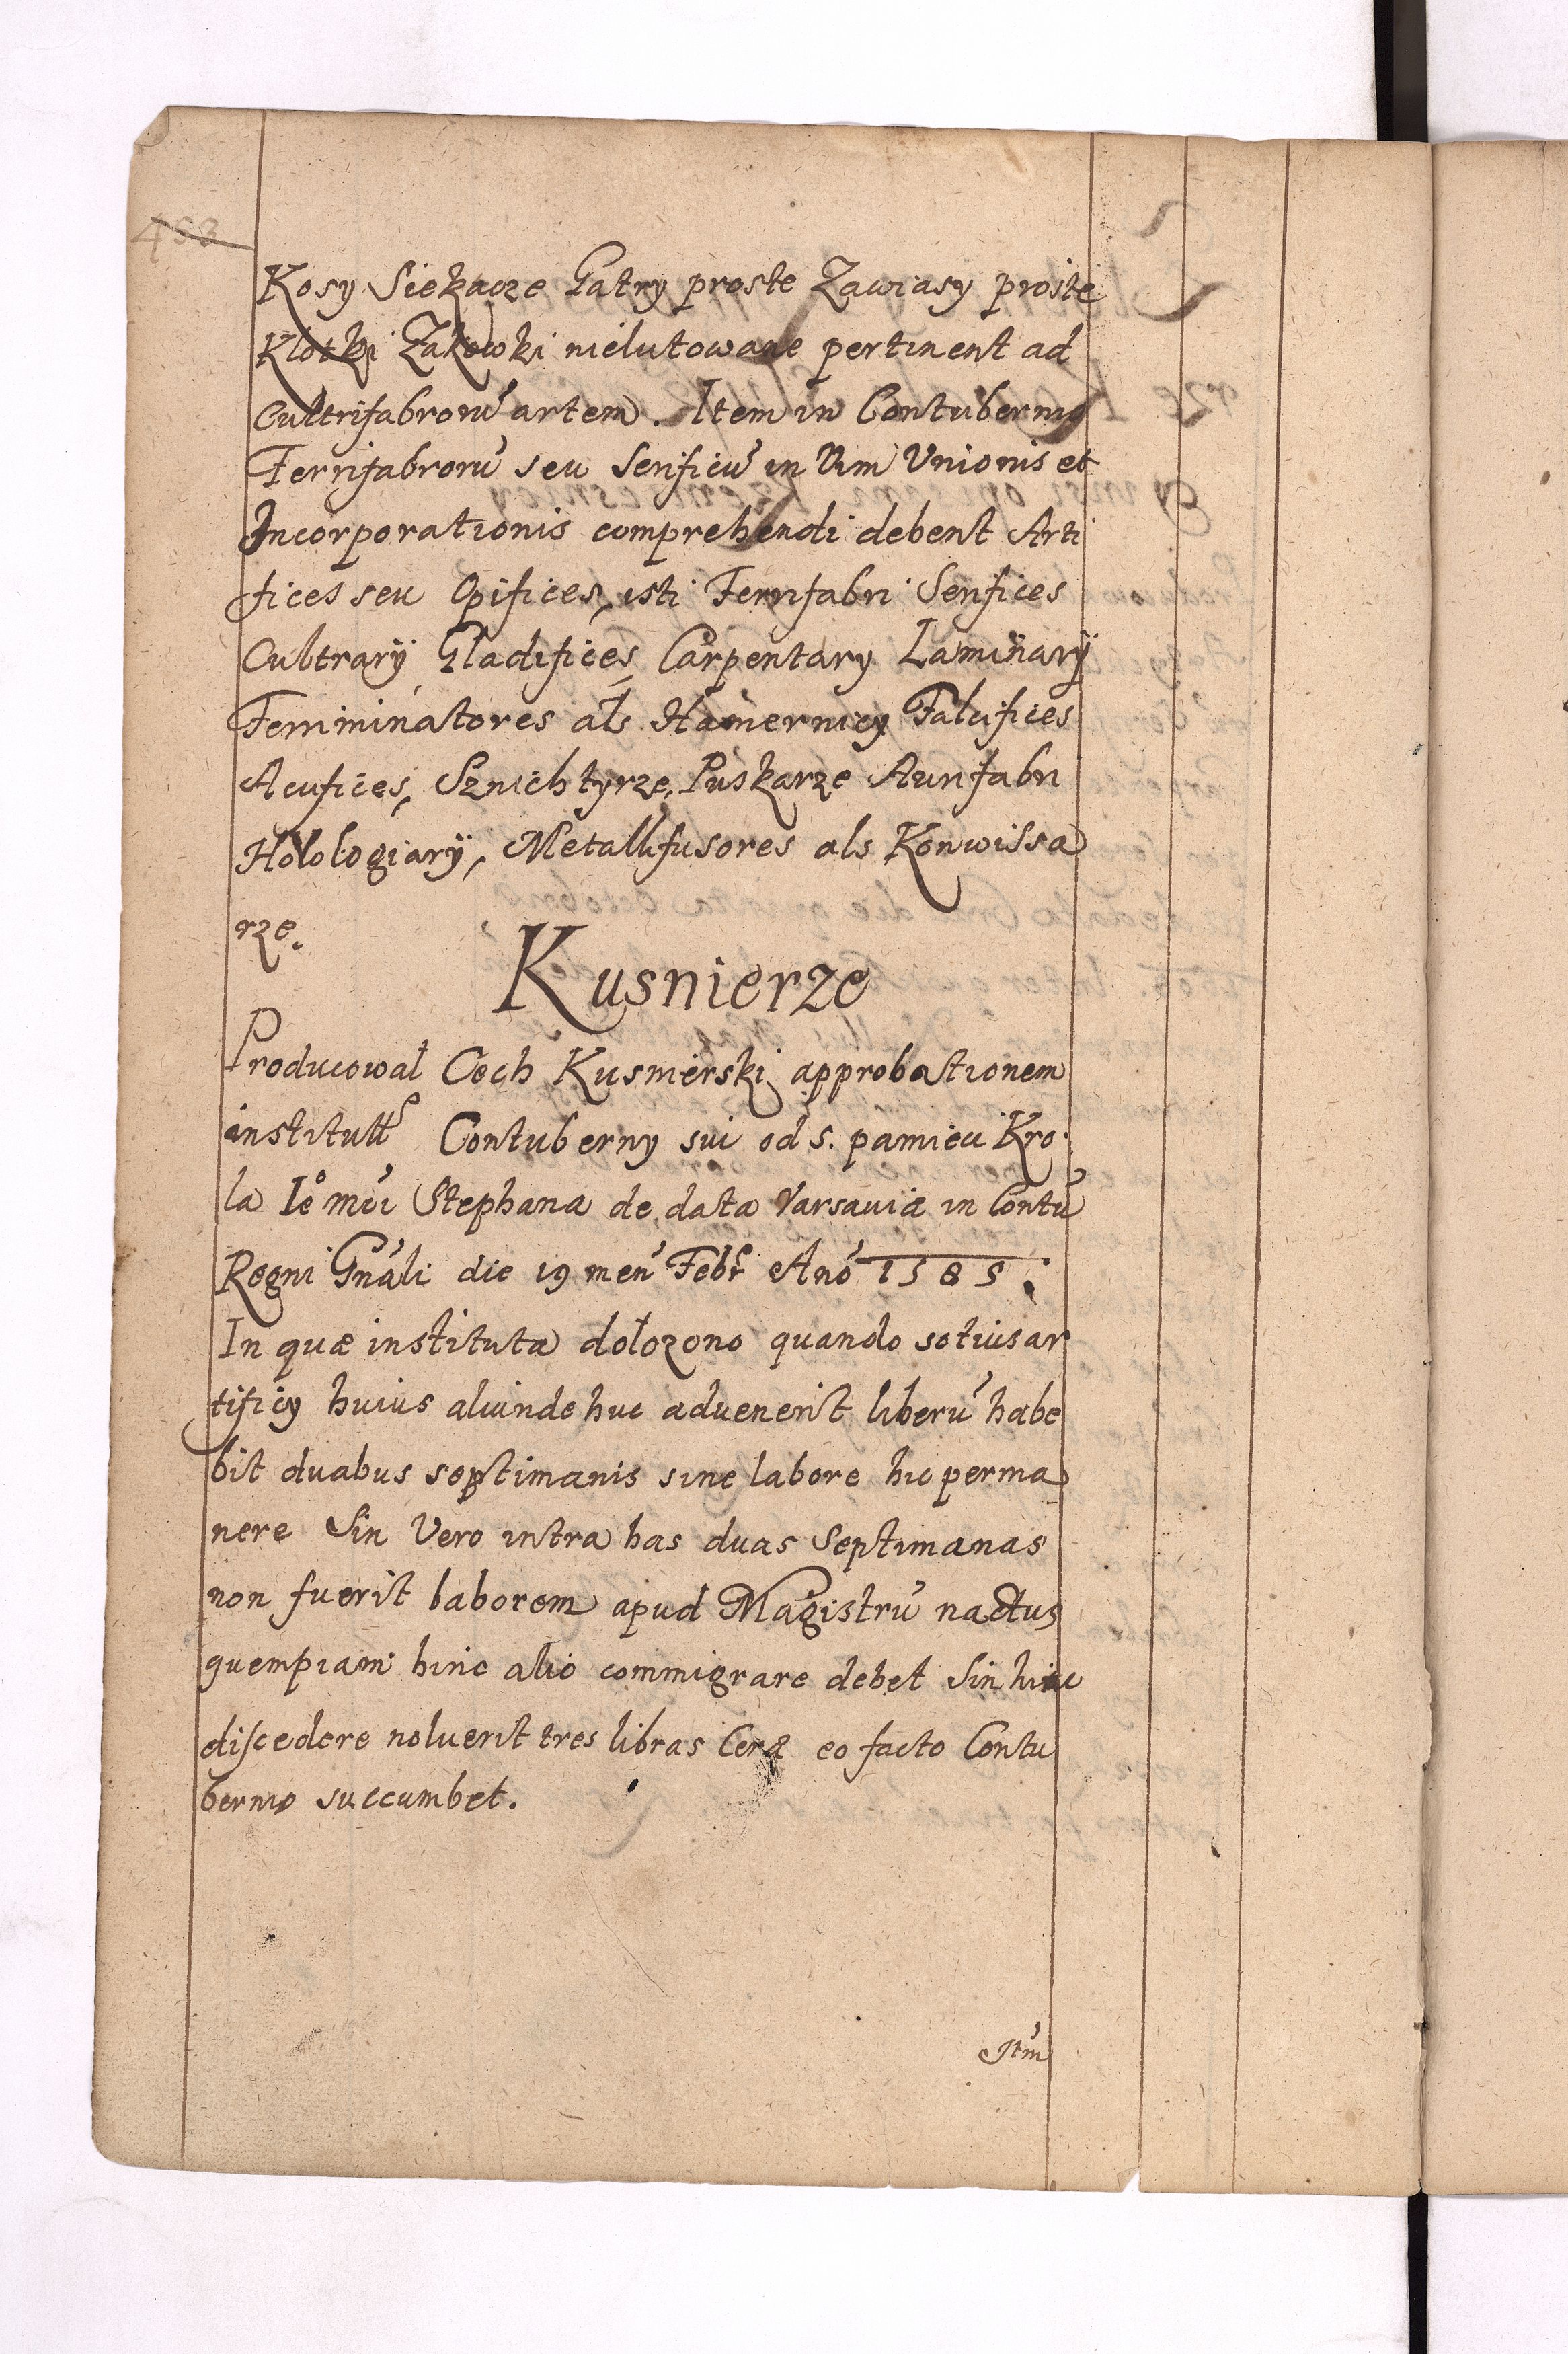 453
Kosy Siekacze Gatry proste Zawiasy proste
Klotki Zakowki nielutowane pertinent ad
Cultrifabrorū artem. Item in Contubernio
Ferrifabrorū seu Serificū in Vim Unionis et
Incorporationis comprehendi debent Arti
fices seu Opifices, isti Ferrifabri Serifices
Cultrarÿ Gladifices, Carpentary Laminarÿ
Ferriminatores als Hamernicy Falcifices
Acufices, Sznichtyrze, Puskarze Aurifabri
Hololog̈iarÿ, Metallifusores als Konwissa
rze.
Kusnierze
Producował Cech Kusnierski approbationem
institutt Contuberny sui od s. pamieci Kro
la Ie° mći Stephana de data Varsaviæ in Contū
Regni Gn̄ali die 19 men̄ Febr Anō 1585.
In quæ instituta dołozono quando sotius ar
tificy huius aliunde huc aduenerit liberū habe
bit duabus septimanis sine labore hic perma
nere Sin Vero intra has duas Septimanas
non fuerit laborem apud Magistrū nactus
quempiam hinc alio commigrare debet Sin hinc
discedere noluerit tres libras Ceræ eo facto Contu
bernio succumbet.
Itm̄